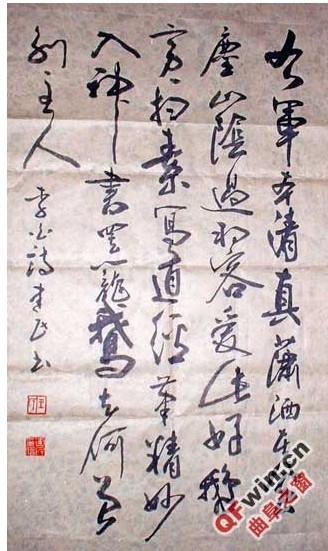 右軍本清真瀟洒在風
塵山陰過羽客愛此好鵝
賓掃素寫道經筆精妙
入神書罷籠鵝去何曾
別主人
李白詩 書
QFwin.cn
曲阜之窗